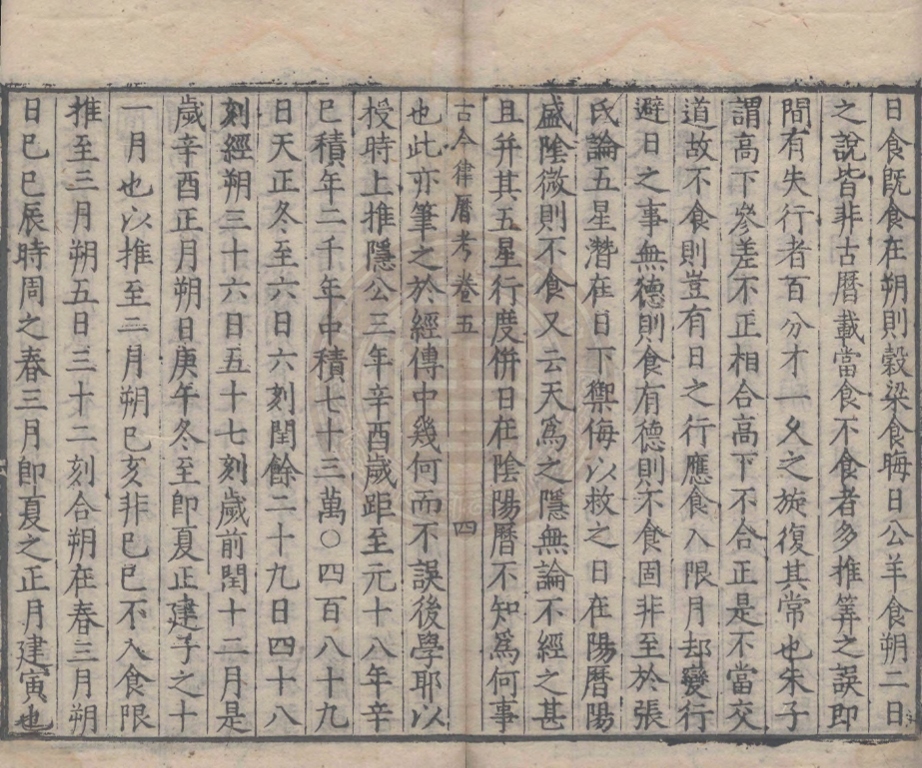 日食既食在朔則穀梁食晦日公羊食朔二日
之說皆非古曆載當食不食者多推筭之誤即
間有失行者百分才一久之旋復其常也朱子
謂高下參差不正相合高下不合正是不當交
道故不食則豈有日之行應食入限月却變行
避日之事無德則食有德則不食固非至於張
氏論五星潛在日下禦侮以救之日在陽曆陽
盛陰微則不食又云天為之隱無論不經之甚
且并其五星行度併日在陰陽曆不知為何事
古今律曆考卷五 四
也此亦筆之於經傳中幾何而不誤後學耶以
授時上推隱公三年辛酉歲距至元十八年辛
巳積年二千年中積七十三萬〇四百八十九
日天正冬至六日六刻閏餘二十九日四十八
刻經朔三十六日五十七刻歲前閏十二月是
歲辛酉正月朔日庚午冬至即夏正建子之十
一月也以推至二月朔己亥非己巳不入食限
推至三月朔五日三十二刻合朔在春三月朔
日己巳辰時周之春三月即夏之正月建寅也